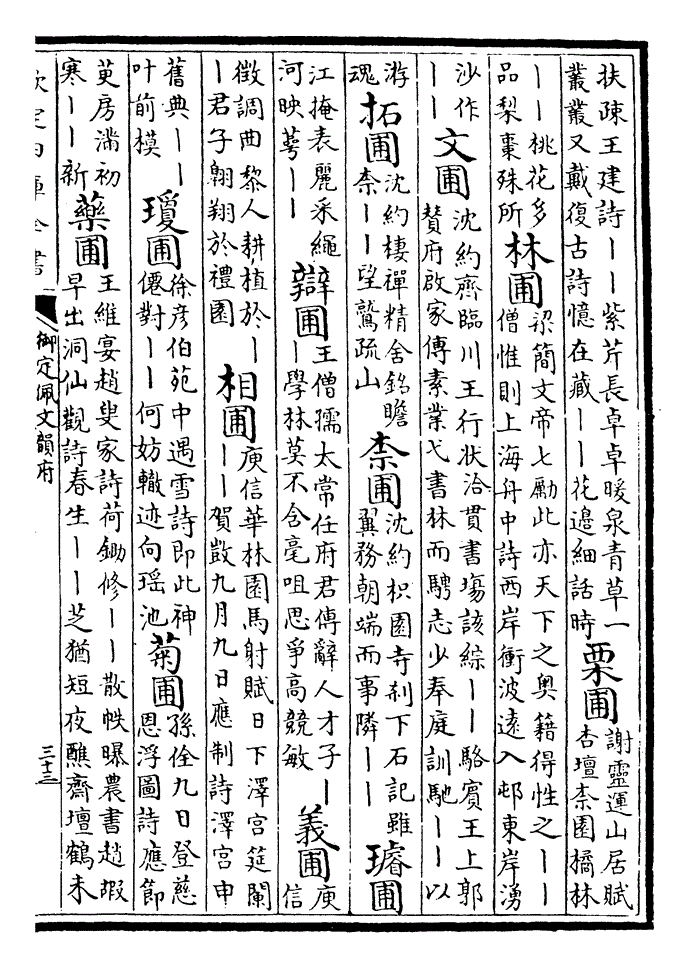 扶疎王建詩｜｜紫芹長卓卓暖泉青草一
叢叢又戴復古詩憶在藏｜｜花邊細話時
栗圃
謝靈運山居賦
杏壇柰園橘林
｜｜桃花多
品梨棗殊所
林圃
梁簡文帝七勵此亦天下之奥籍得性之｜｜
僧惟則上海舟中詩西岸衝波遠入邨東岸湧
沙作
｜｜
文圃
沈約齊臨川王行狀洽貫書塲該綜｜｜駱賓王上郭
贊府啟家傳素業弋書林而騁志少奉庭訓馳｜｜以
游
魂
拓圃
沈約棲禪精舍銘瞻
柰｜｜望鷲疏山
柰圃
沈約枳園寺刹下石記雖
翼務朝端而事隣｜｜
璿圃
江掩表麗采繩
河映蕚｜｜
辯圃
王僧孺太常任府君傳辭人才子｜
｜學林莫不含毫咀思爭高競敏
義圃
庾
信
徵調曲黎人耕植於｜
｜君子翱翔於禮園
相圃
庾信華林園馬射賦日下澤宫筵闌
｜｜賀敳九月九日應制詩澤宫申
舊典｜｜
叶前模
瓊圃
徐彦伯苑中遇雪詩即此神
僊對｜｜何妨轍迹向瑶池
菊圃
孫佺九日登慈
恩浮圖詩應節
萸房滿初
寒｜｜新
藥圃
王維宴趙叟家詩荷鋤修｜｜散帙曝農書趙嘏
早出洞仙觀詩春生｜｜芝猶短夜醮齊壇鶴未
欽定四庫全書
御定佩文韻府
三十三